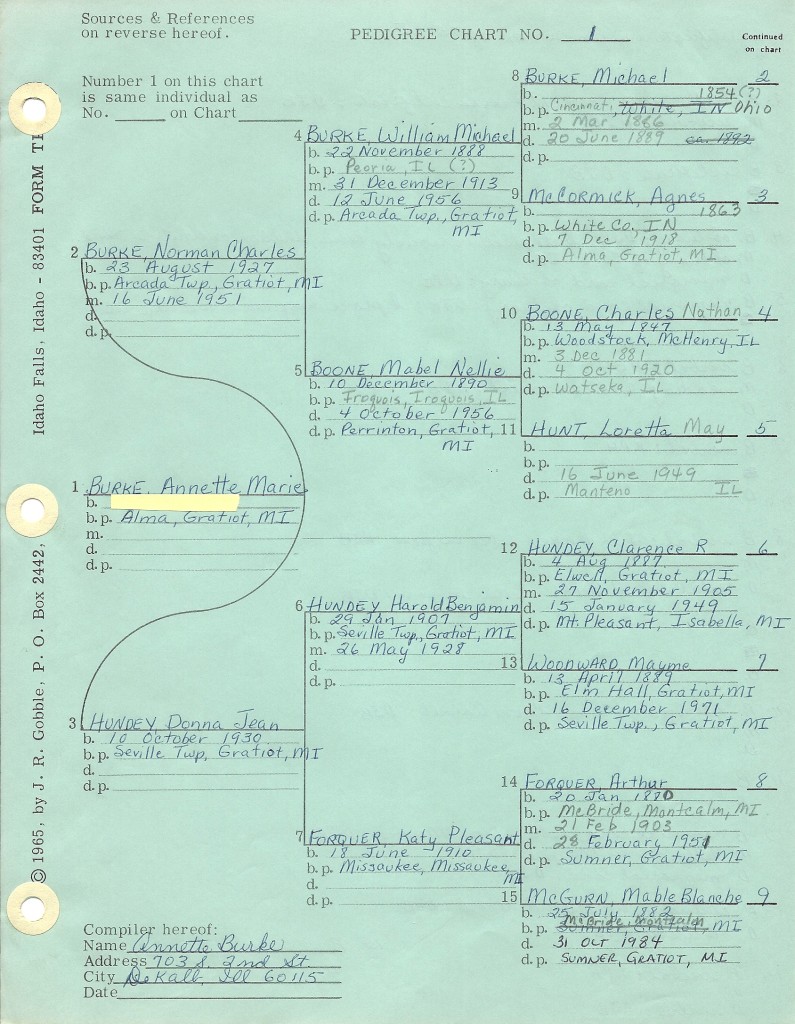 Sources & References
on reverse hereof.
PEDIGREE CHART NO. 1
Continued
on chart
Number 1 on this chart
is same individual as
No. ______ on Chart ______
8 BURKE, Michael 2
b. 1854(?)
b.p. Cincinnati, White, IN Ohio
m. 2 Mar 1886
d. 20 June 1889 ca. 1892
d.p.
4 BURKE, William Michael
b. 22 November 1888
b.p. Peoria, IL (?)
m. 31 December 1913
d. 12 June 1956
d.p. Arcada Twp., Gratiot,
MI
9 McCORMICK, Agnes 3
b. 1863
b.p. White Co., IN
d. 7 Dec 1918
d.p. Alma, Gratiot, MI
2 BURKE, Norman Charles
b. 23 August 1927
b.p. Arcada Twp, Gratiot, MI
m. 16 June 1951
d.
d.p.
10 BOONE, Charles Nathan 4
b. 13 May 1847
b.p. Woodstock, McHenry, IL
m. 3 Dec 1881
d. 4 Oct 1920
d.p. Watseka, IL
5 BOONE, Mabel Nellie
b. 10 December 1890
b.p. Iroquois, Iroquois, IL
d. 4 October 1956
d.p. Perrinton, Gratiot,
MI
11 HUNT, Loretta May 5
b.
b.p.
d. 16 June 1949
d.p. Manteno IL
1 BURKE, Annette Marie
b.
b.p. Alma, Gratiot, MI
m.
d.
d.p.
12 HUNDEY, Clarence R 6
b. 4 Aug 1887
b.p. Elwell, Gratiot, MI
m. 27 November 1905
d. 15 January 1949
d.p. Mt. Pleasant, Isabella, MI
6 HUNDEY Harold Benjamin
b. 29 Jan 1907
b.p. Seville Twp, Gratiot, MI
m. 26 May 1928
d.
d.p.
13 WOODWARD, Mayme 7
b. 13 April 1889
b.p. Elm Hall, Gratiot, MI
d. 16 December 1971
d.p. Seville Twp., Gratiot, MI
3 HUNDEY, Donna Jean
b. 10 October 1930
b.p. Seville Twp, Gratiot, MI
d.
d.p.
14 FORQUER, Arthur 8
b. 20 Jan 1870
b.p. McBride, Montcalm, MI
m. 21 Feb 1903
d. 28 February 1951
d.p. Sumner, Gratiot, MI
7 FORQUER, Katy Pleasant
b. 18 June 1910
b.p. Missaukee, Missaukee,
MI
d.
d.p.
15 McGURN, Mable Blanche 9
b. 25 July 1882
McBride, Montcalm
b.p. Sumner, Gratiot, MI
d. 31 OCT 1984
d.p. SUMNER, GRATIOT, MI
Compiler hereof:
Name Annette Burke
Address 703 S. 2nd St.
City DeKalb, Ill 60115
Date
© 1965, by J. R. Gobble, P. O. Box 2442, Idaho Falls, Idaho - 83401 FORM